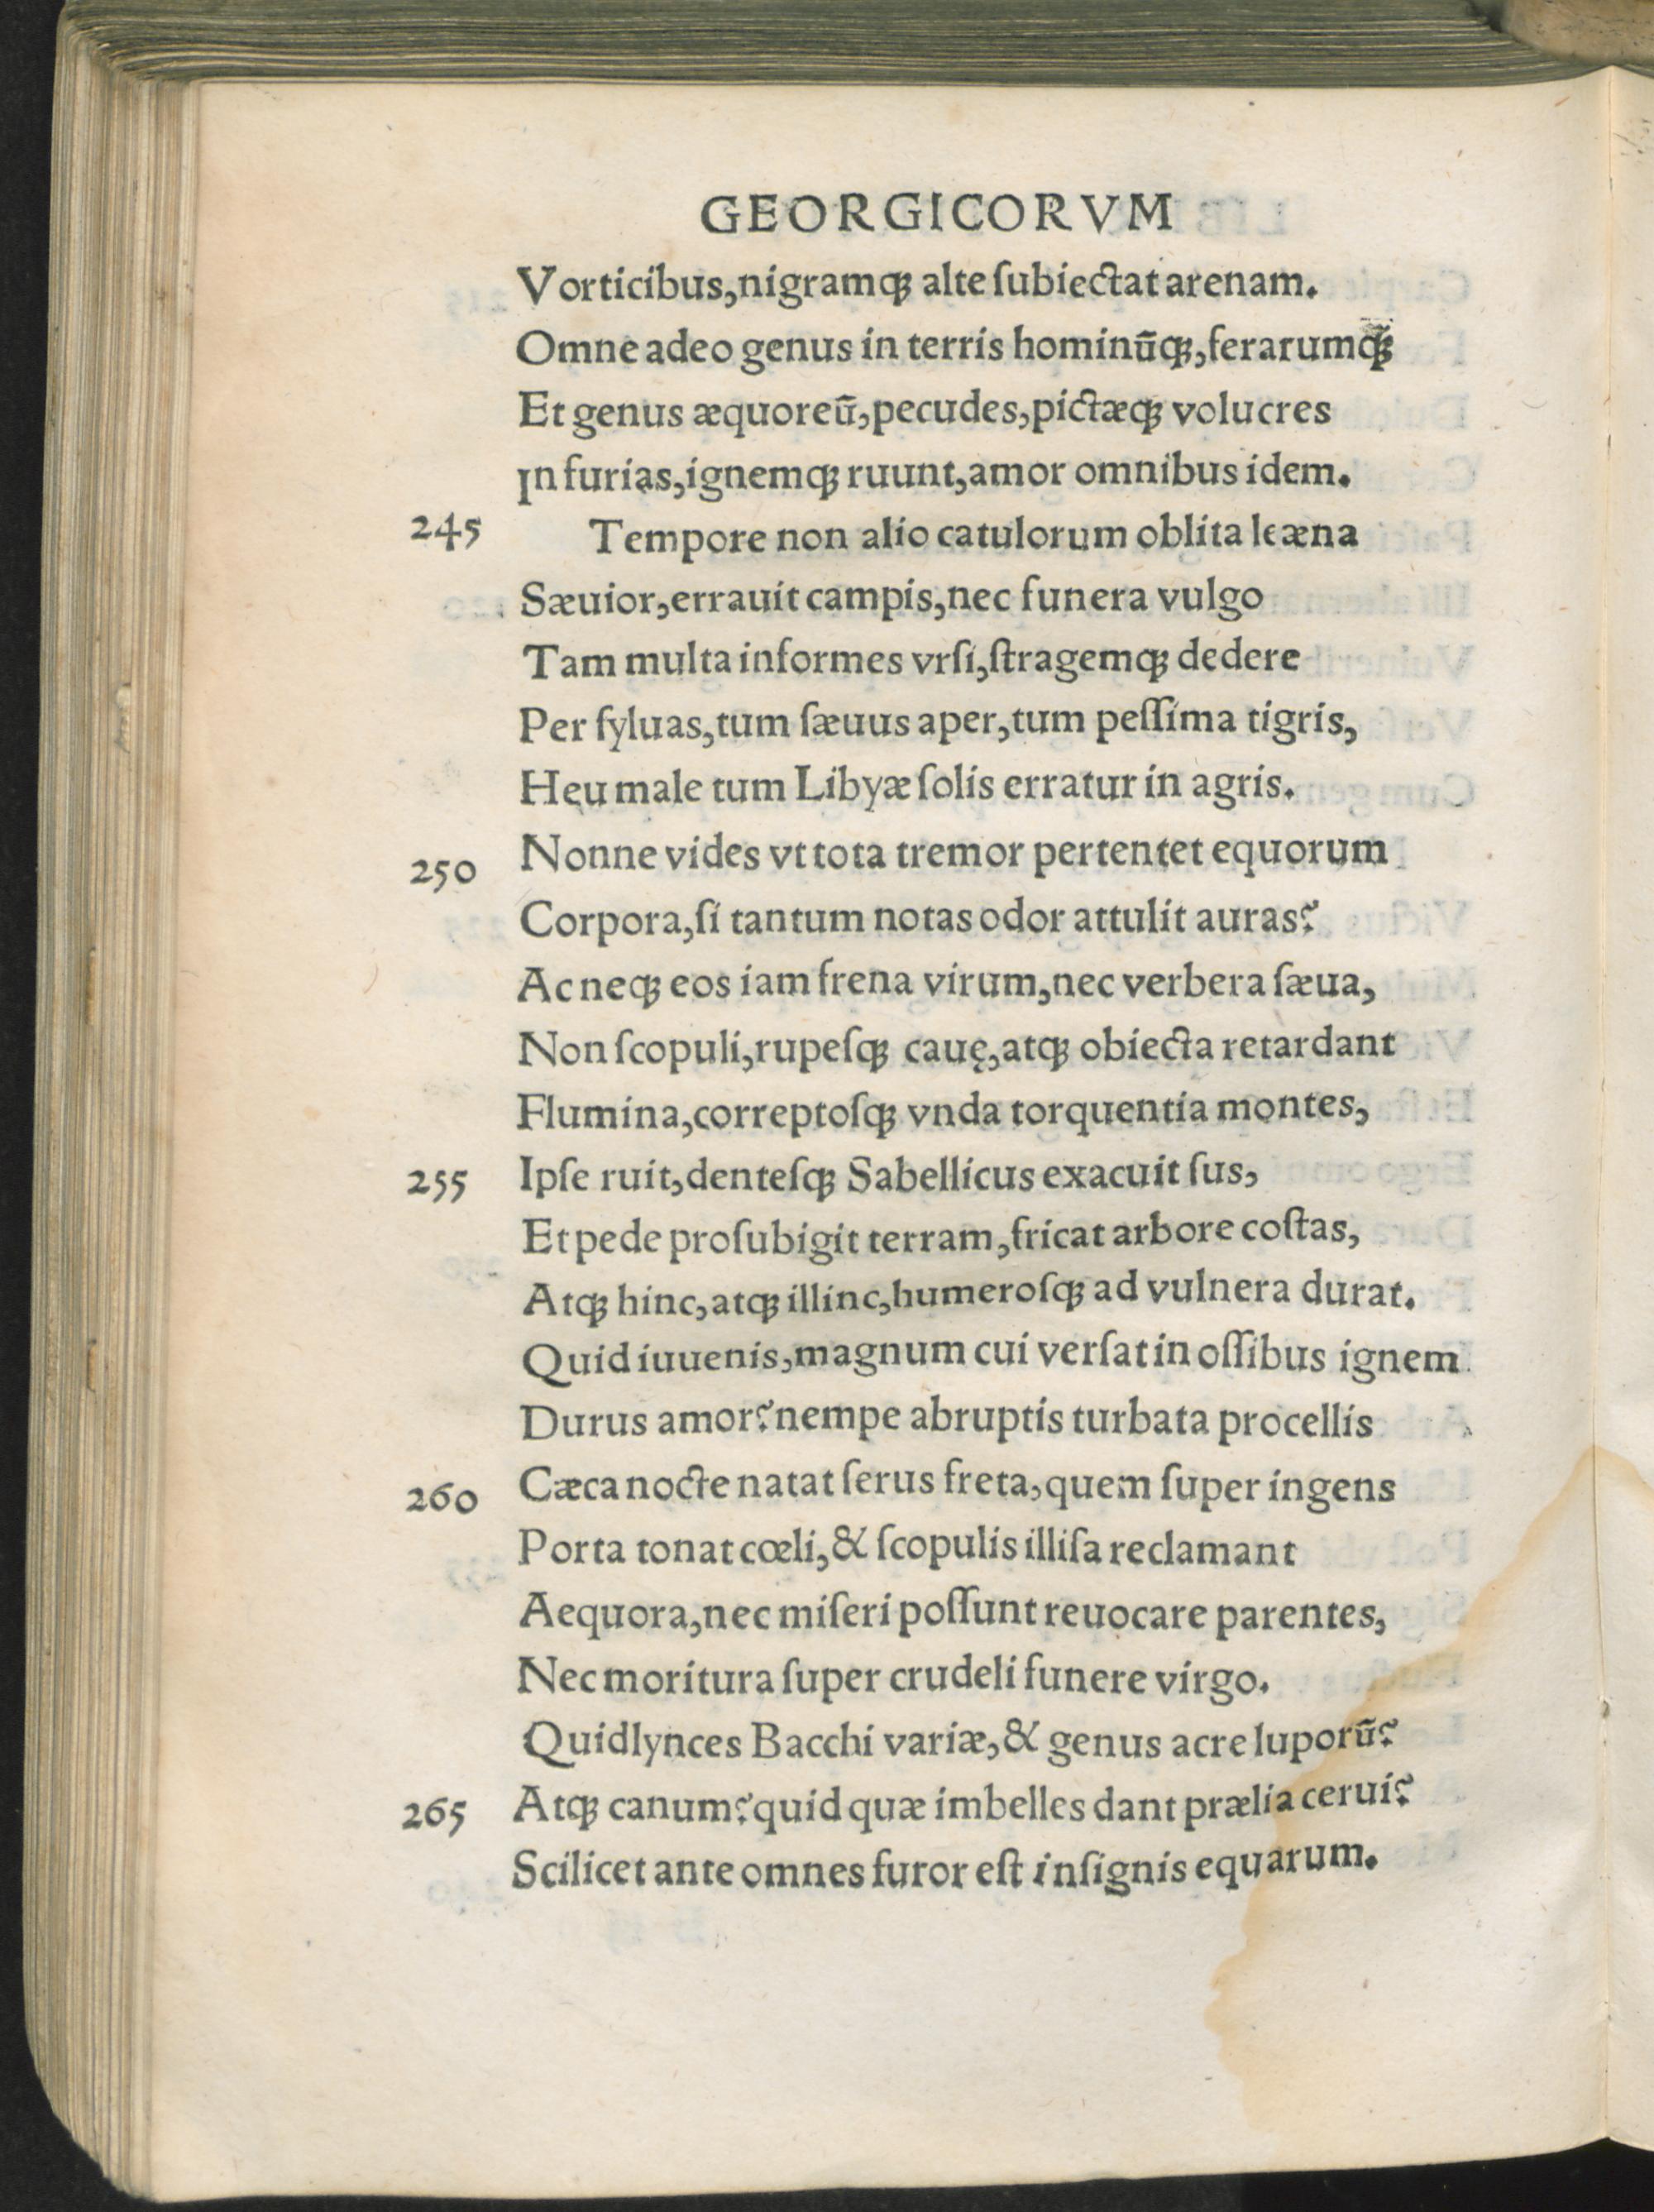 GEORGICORVM
Vorticibus,nigramqꝫ alte ſubiectat arenam.
Omne adeo genus in terris hominūqꝫ,ferarumqꝫ
Et genus æquoreū,pecudes,pictæqꝫ volucres
In furias,ignemqꝫ ruunt,amor omnibus idem.
245 Tempore non alio catulorum oblita leæna
Sæuior,errauit campis,nec funera vulgo
Tam multa informes vrſi,ſtragemqꝫ dedere
Per ſyluas,tum ſæuus aper,tum peſſima tigris,
Heu male tum Libyæ ſolis erratur in agris.
250 Nonne vides vt tota tremor pertentet equorum
Corpora,ſi tantum notas odor attulit auras?
Ac neqꝫ eos iam frena virum,nec verbera ſæua,
Non ſcopuli,rupeſqꝫ cauę,atqꝫ obiecta retardant
Flumina,correptoſqꝫ vnda torquentia montes,
255 Ipſe ruit,denteſqꝫ Sabellicus exacuit ſus,
Et pede proſubigit terram,fricat arbore coſtas,
Atqꝫ hinc,atqꝫ illinc,humeroſqꝫ ad vulnera durat.
Quid iuuenis,magnum cui verſat in oſſibus ignem
Durus amor?nempe abruptis turbata procellis
260 Cæca nocte natat ſerus freta,quem ſuper ingens
Porta tonat cœli,& ſcopulis illiſa reclamant
Aequora,nec miſeri poſſunt reuocare parentes,
Nec moritura ſuper crudeli funere virgo.
Quid lynces Bacchi variæ,& genus acre luporū?
265 Atqꝫ canum?quid quæ imbelles dant prælia cerui?
Scilicet ante omnes furor eſt inſignis equarum.